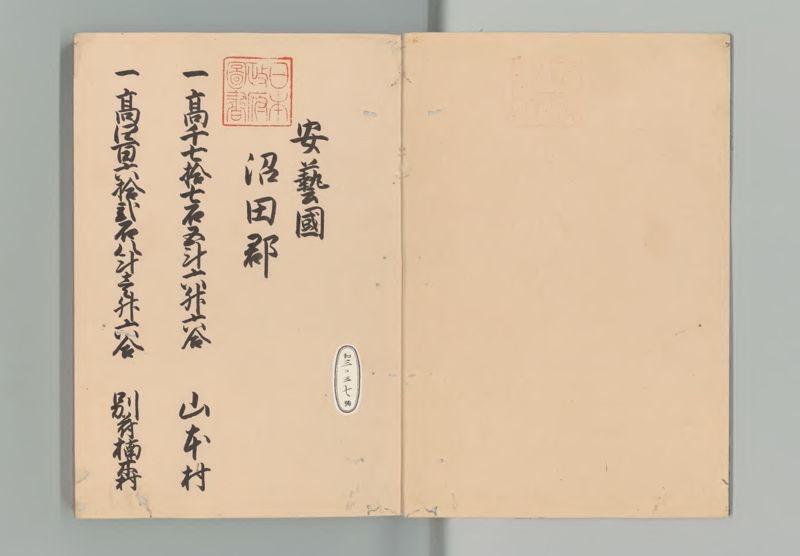 日本
政府
圖書
安藝國
沼田郡
一高千七拾七石五斗六升六合 山本村
一高四百六拾弐石八斗壱升六合 別
和三
七
號